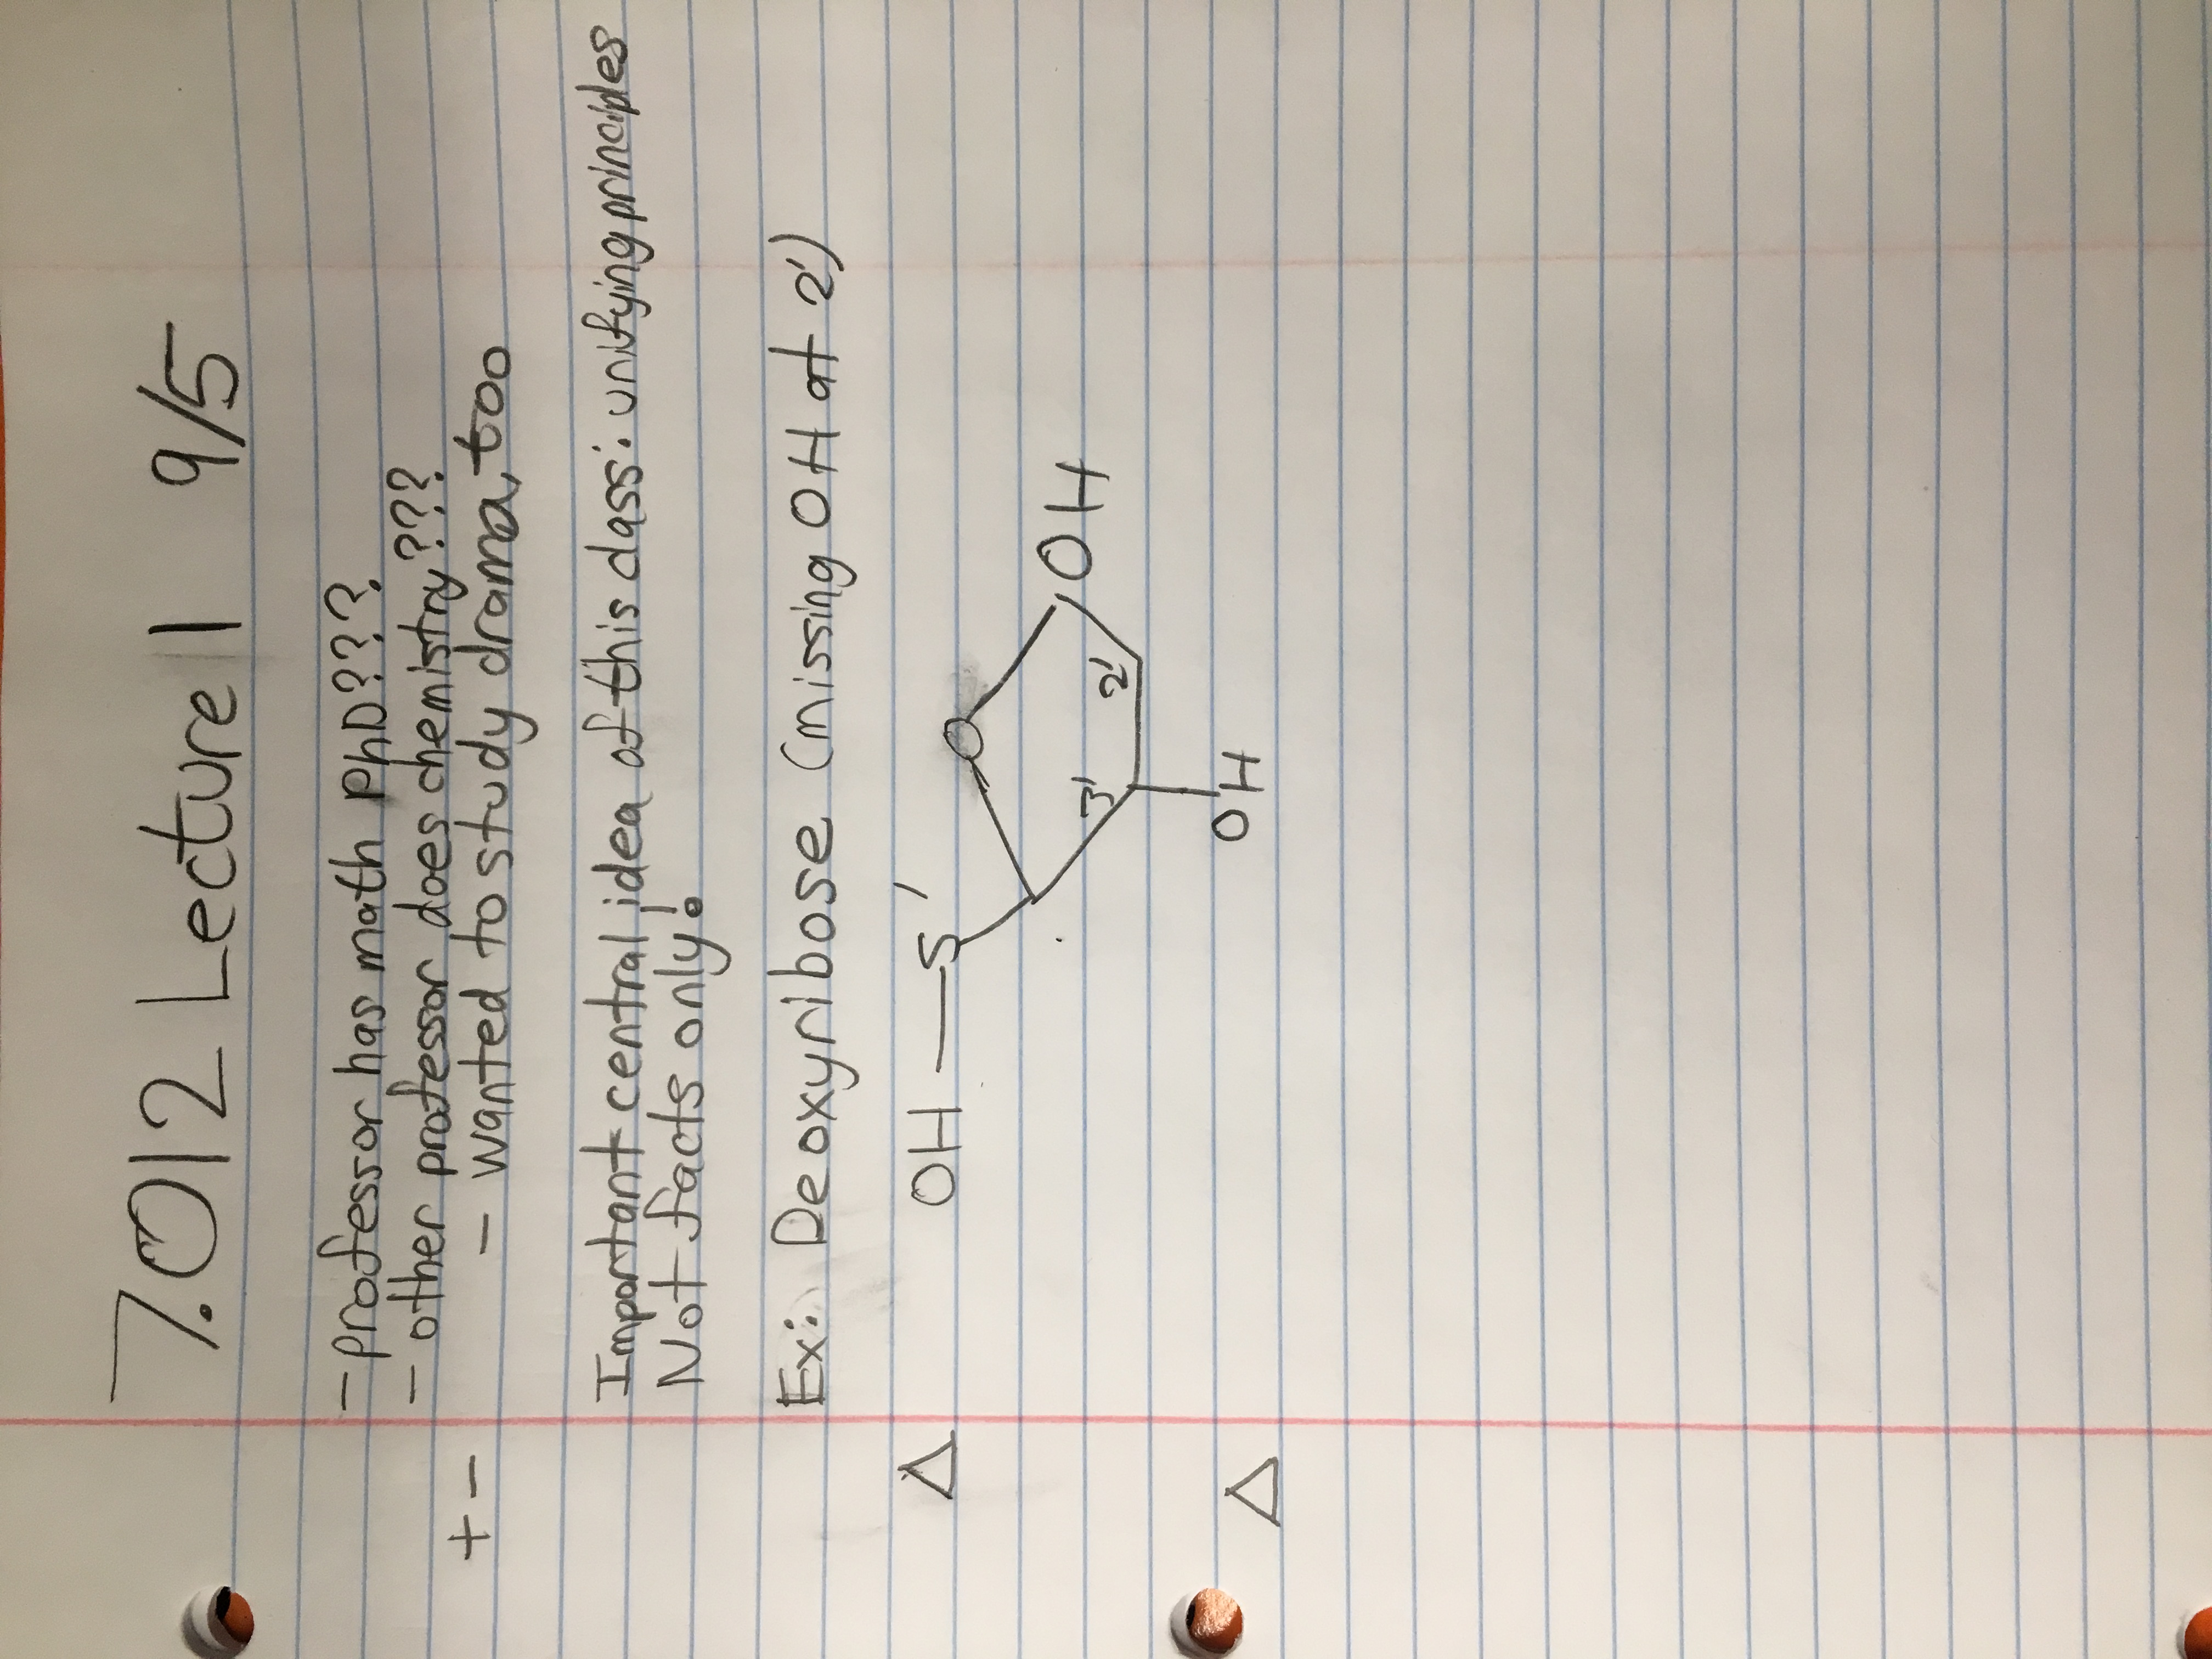 7.012 Lecture 1 9/5
- professor has math PhD???.
- other professor does chemistry????
+ - - wanted to study drama, too
Important central idea of this class: unifying principles
Not facts only!
Ex: Deoxyribose (missing OH at 2')
Δ OH — 5'
O
OH
3' 2'
OH
Δ